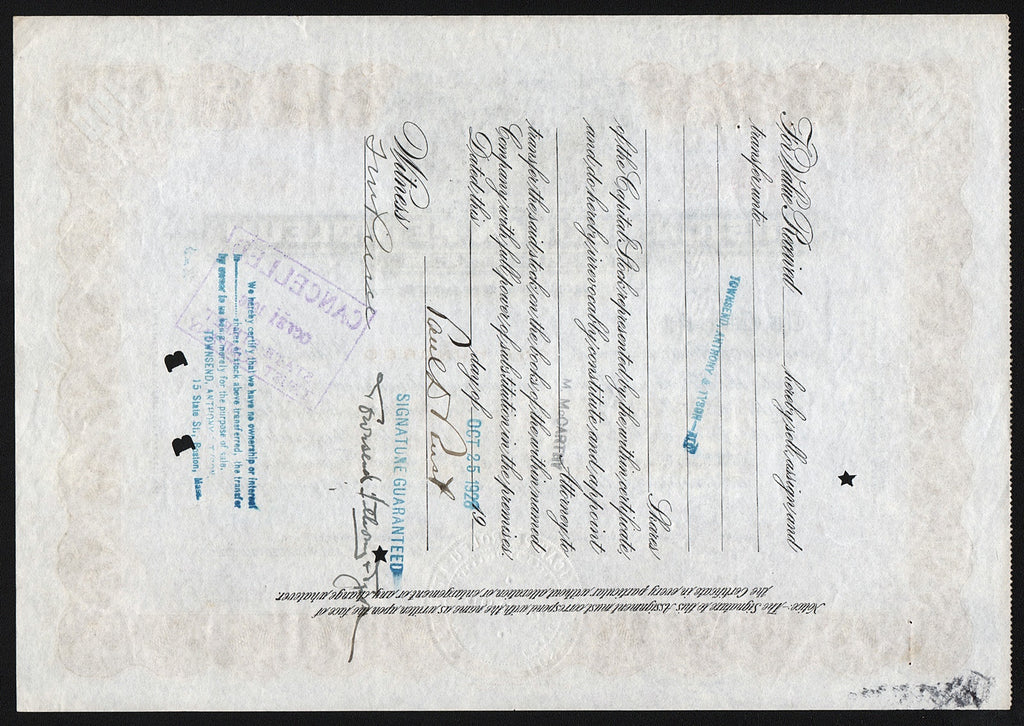 For Value Received hereby sell, assign, and
transfer unto
TOWNSEND, ANTHONY & TYSON
Shares
of the Capital Stock represented by the within certificate,
and do hereby irrevocably constitute and appoint
M. McCARTHY Attorney to
transfer the said stock on the books of the within named
Company with full power of substitution in the premises.
Dated, this day of OCT 25 1928 19
Witness
SIGNATURE GUARANTEED
Townsend Anthony & Tyson
Notice:-The Signature to this Assignment must correspond with the name as written upon the face of
the Certificate, in every particular, without alteration or enlargement or any change whatever.
CANCELLED
We hereby certify that we have no ownership or interest
in shares of stock above transferred, the transfer
by us being merely for the purpose of sale.
TOWNSEND, ANTHONY & TYSON
15 State St., Boston, Mass.